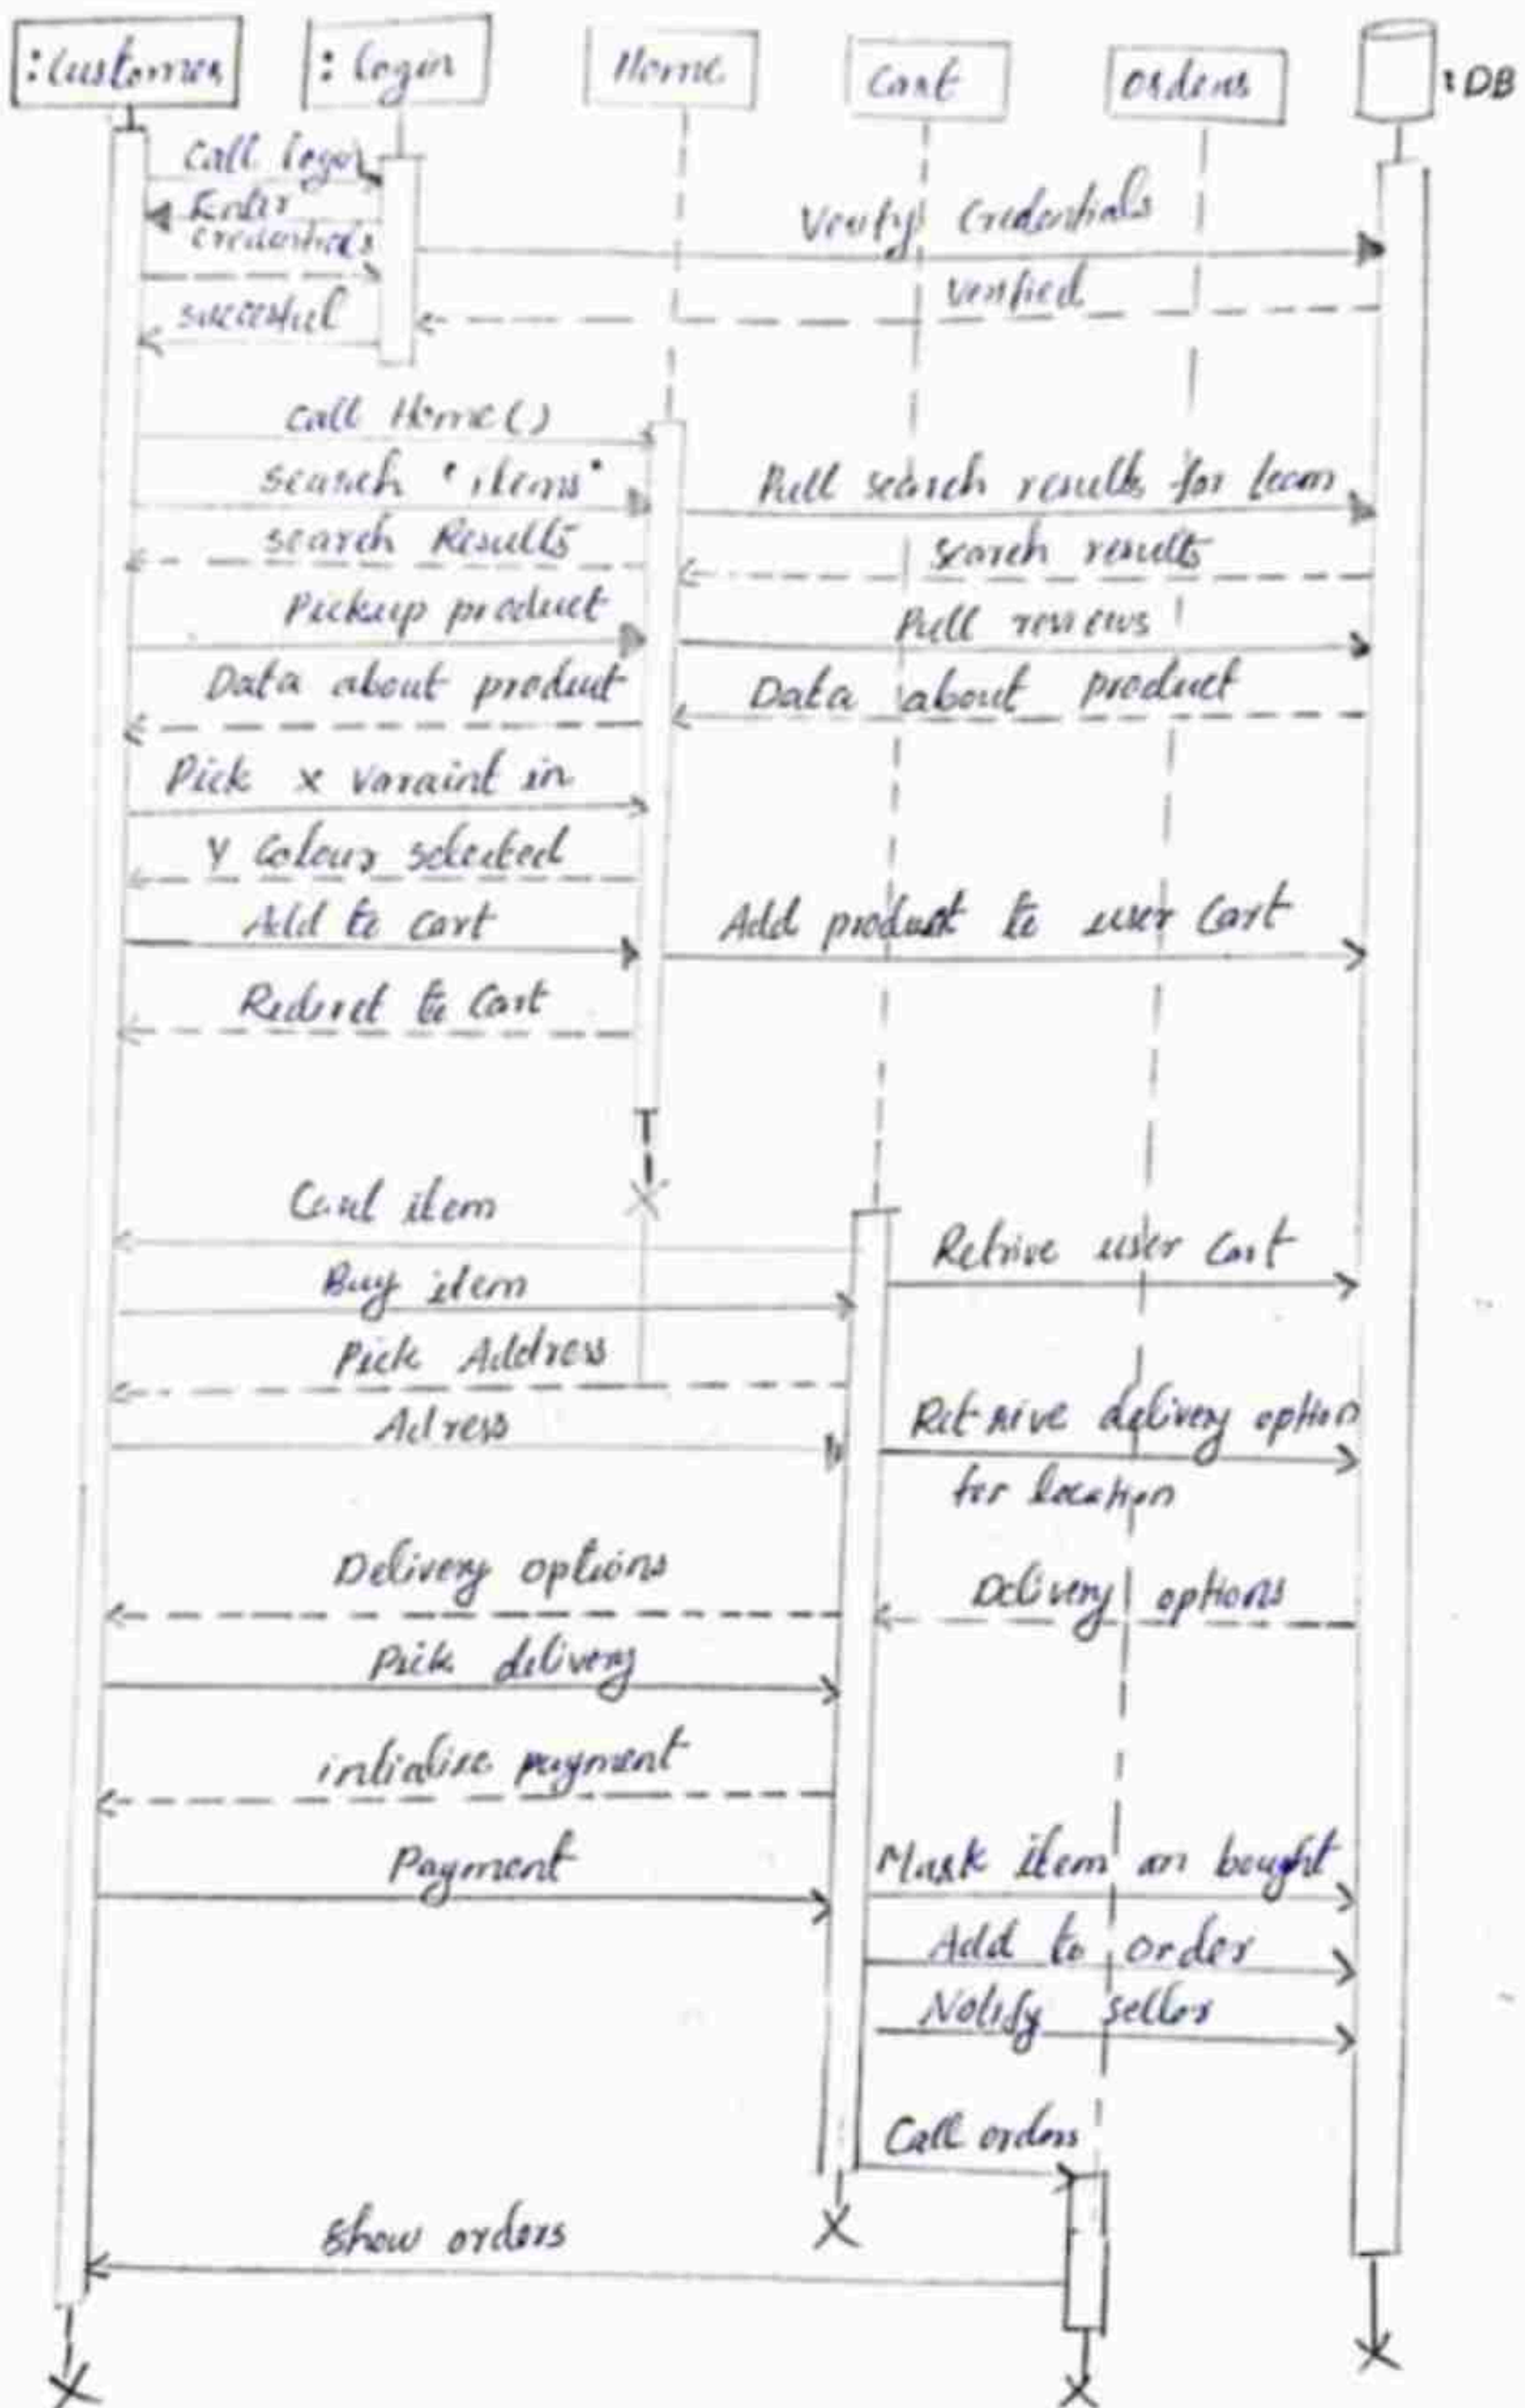 :Customer
: login
Home
Cart
orders
:DB
Call login
Enter
credentials
Verify Credentials
Verified
successful
call Home()
search "items"
Pull search results for
search Results
search results
Pickup product
Pull reviews
Data about product
Data about product
Pick x Varaint in
Y Colour selected
Add to cart
Add product to user Cart
Redirect to Cart
item
Retrive user Cart
Buy item
Pick Address
Adress
Retrive delivery option
for location
Delivery options
Delivery options
Pick delivery
intialize payment
Payment
Mark item an bought
Add to order
Notify seller
Call orders
Show orders